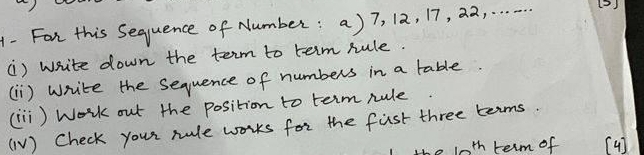 1- For this Sequence of Number : a) 7, 12, 17, 22, .......
(i) Write down the term to term rule .
(ii) Write the Sequence of numbers in a table .
(iii) Work out the position to term rule .
(iv) Check your rule works for the first three terms .
the 10th term of [4]